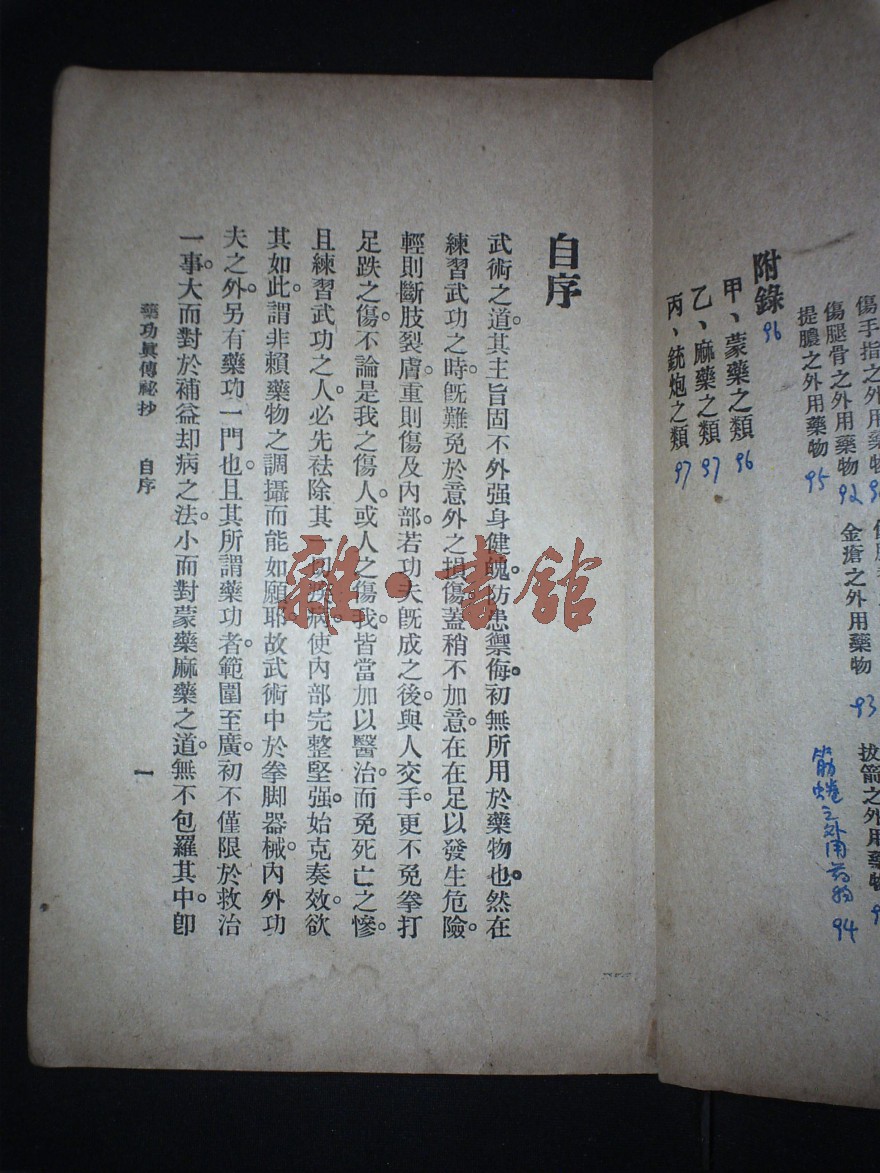 傷手指之外用藥物
傷腿骨之外用藥物 92
提膿之外用藥物 95
金瘡之外用藥物 93
拔箭之外用藥物
筋蜷之外用药物 94
附錄 96
甲、蒙藥之類 96
乙、麻藥之類 97
丙、銃炮之類 97
自序
武術之道。其主旨固不外强身健魄。防患禦侮。初無所用於藥物也。然在
練習武功之時。旣難免於意外之損傷。蓋稍不加意。在在足以發生危險。
輕則斷肢裂膚。重則傷及內部。若功夫旣成之後。與人交手。更不免拳打
足跌之傷。不論是我之傷人。或人之傷我。皆當加以醫治。而免死亡之慘。
且練習武功之人。必先祛除其一切病。使內部完整堅强。始克奏效。欲
其如此。謂非賴藥物之調攝而能如願耶。故武術中於拳脚器械內外功
夫之外。另有藥功一門也。且其所謂藥功者。範圍至廣。初不僅限於救治
一事。大而對於補益却病之法。小而對蒙藥麻藥之道。無不包羅其中。卽
藥功眞傳祕抄 自序
一
雜·書館